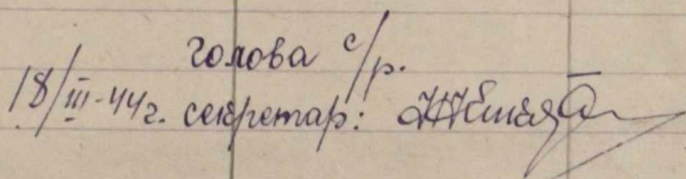 голова с/р.
18/III-44г. секретар: